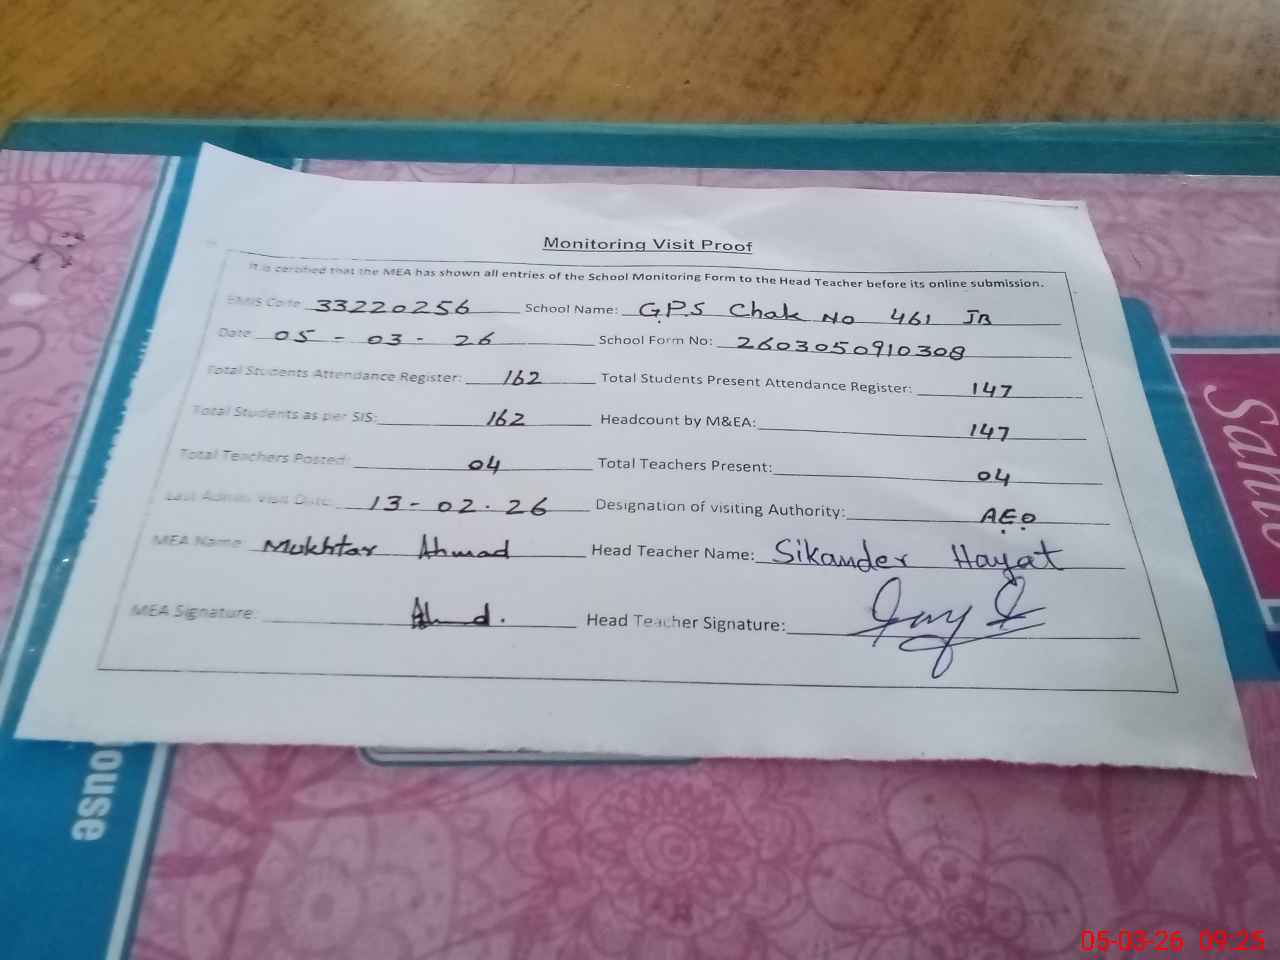 Monitoring Visit Proof
It is certified that the MEA has shown all entries of the School Monitoring Form to the Head Teacher before its online submission.
EMIS Code: 33220256 School Name: G.P.S Chak No 461 JB
Date: 05 - 03 - 26 School Form No: 2603050910308
Total Students Attendance Register: 162 Total Students Present Attendance Register: 147
Total Students as per SIS: 162 Headcount by M&EA: 147
Total Teachers Posted: 04 Total Teachers Present: 04
Last Admin Visit Date: 13 - 02 . 26 Designation of visiting Authority: A.E.O
MEA Name: Mukhtar Ahmad Head Teacher Name: Sikander Hayat
MEA Signature: Head Teacher Signature:
ouse
Sani
05-03-26 09:25